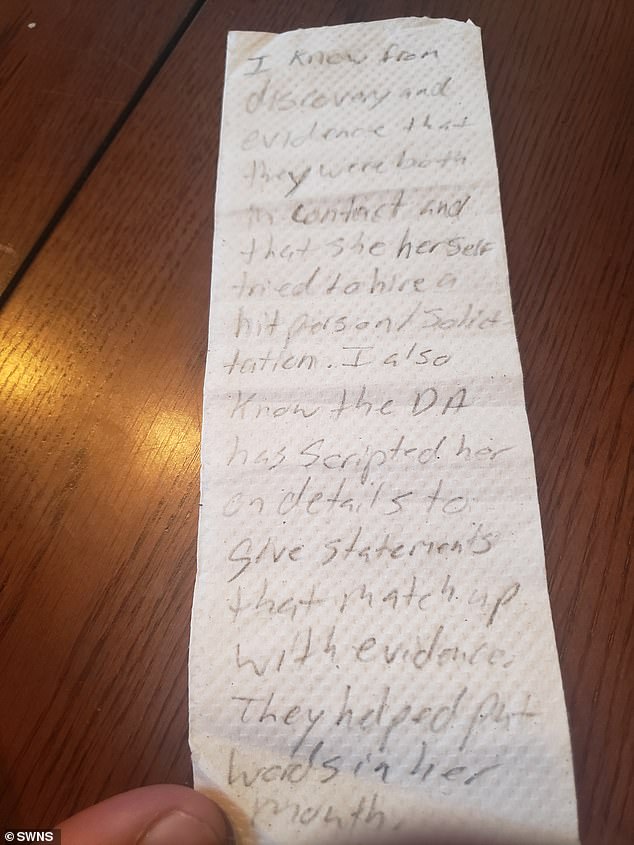 I know from
discovery and
evidence that
they were both
in contact and
that she herself
tried to hire a
hit person/Solici-
tation. I also
know the DA
has scripted her
on details to
give statements
that match up
with evidence.
They helped put
words in her
mouth.
© SWNS